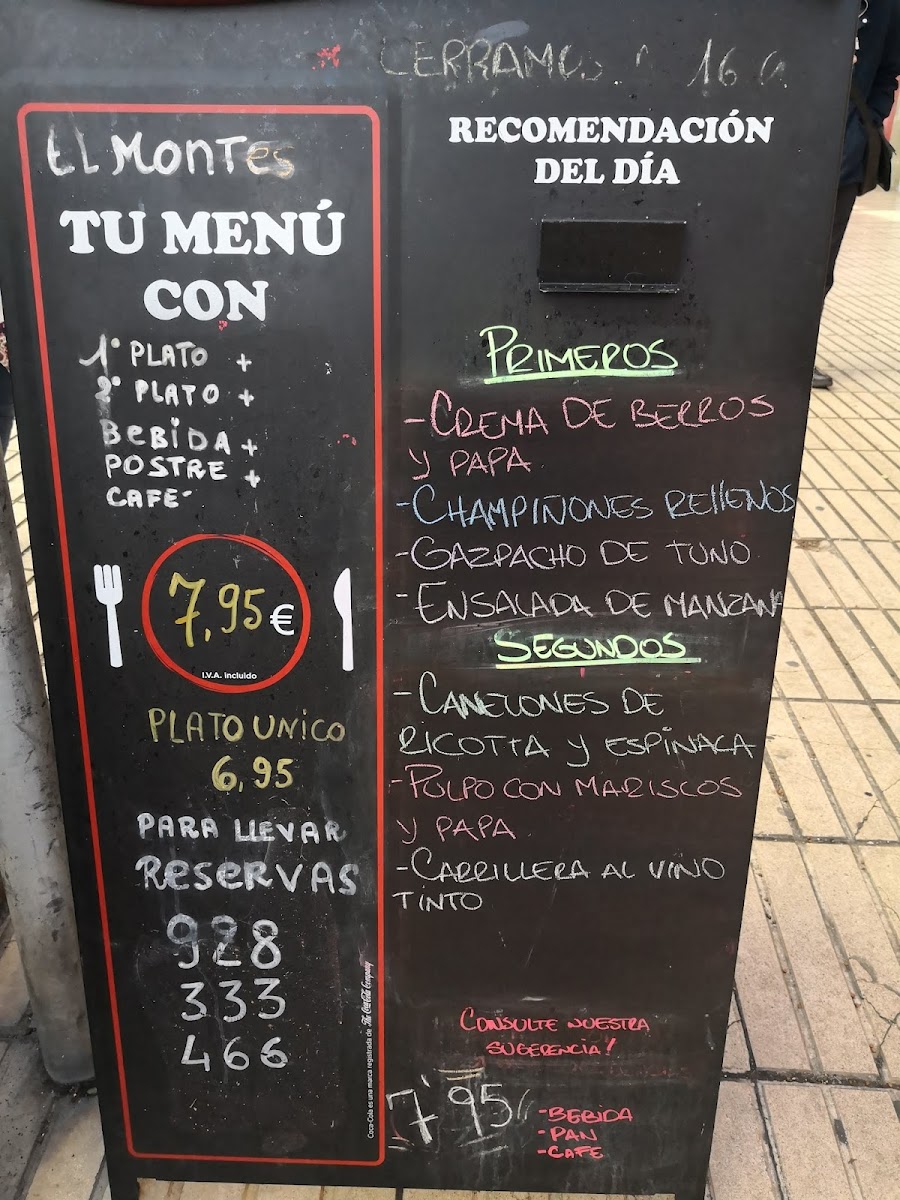 CERRAMOS 16
El Montes
TU MENÚ
CON
1º PLATO +
2º PLATO +
BEBIDA +
POSTRE +
CAFÉ
7,95 €
I.V.A. incluido
PLATO UNICO
6,95
PARA LLEVAR
RESERVAS
928
333
466
Coca-Cola es una marca registrada de The Coca-Cola Company
RECOMENDACIÓN
DEL DÍA
PRIMEROS
-CREMA DE BERROS
Y PAPA
-CHAMPIÑONES RELLENOS
-GAZPACHO DE TUNO
-ENSALADA DE MANZANA
SEGUNDOS
-CANELONES DE
RICOTTA Y ESPINACA
-PULPO CON MARISCOS
Y PAPA
-CARRILLERA AL VINO
TINTO
CONSULTE NUESTRA
SUGERENCIA!
7'95
-BEBIDA
-PAN
-CAFE